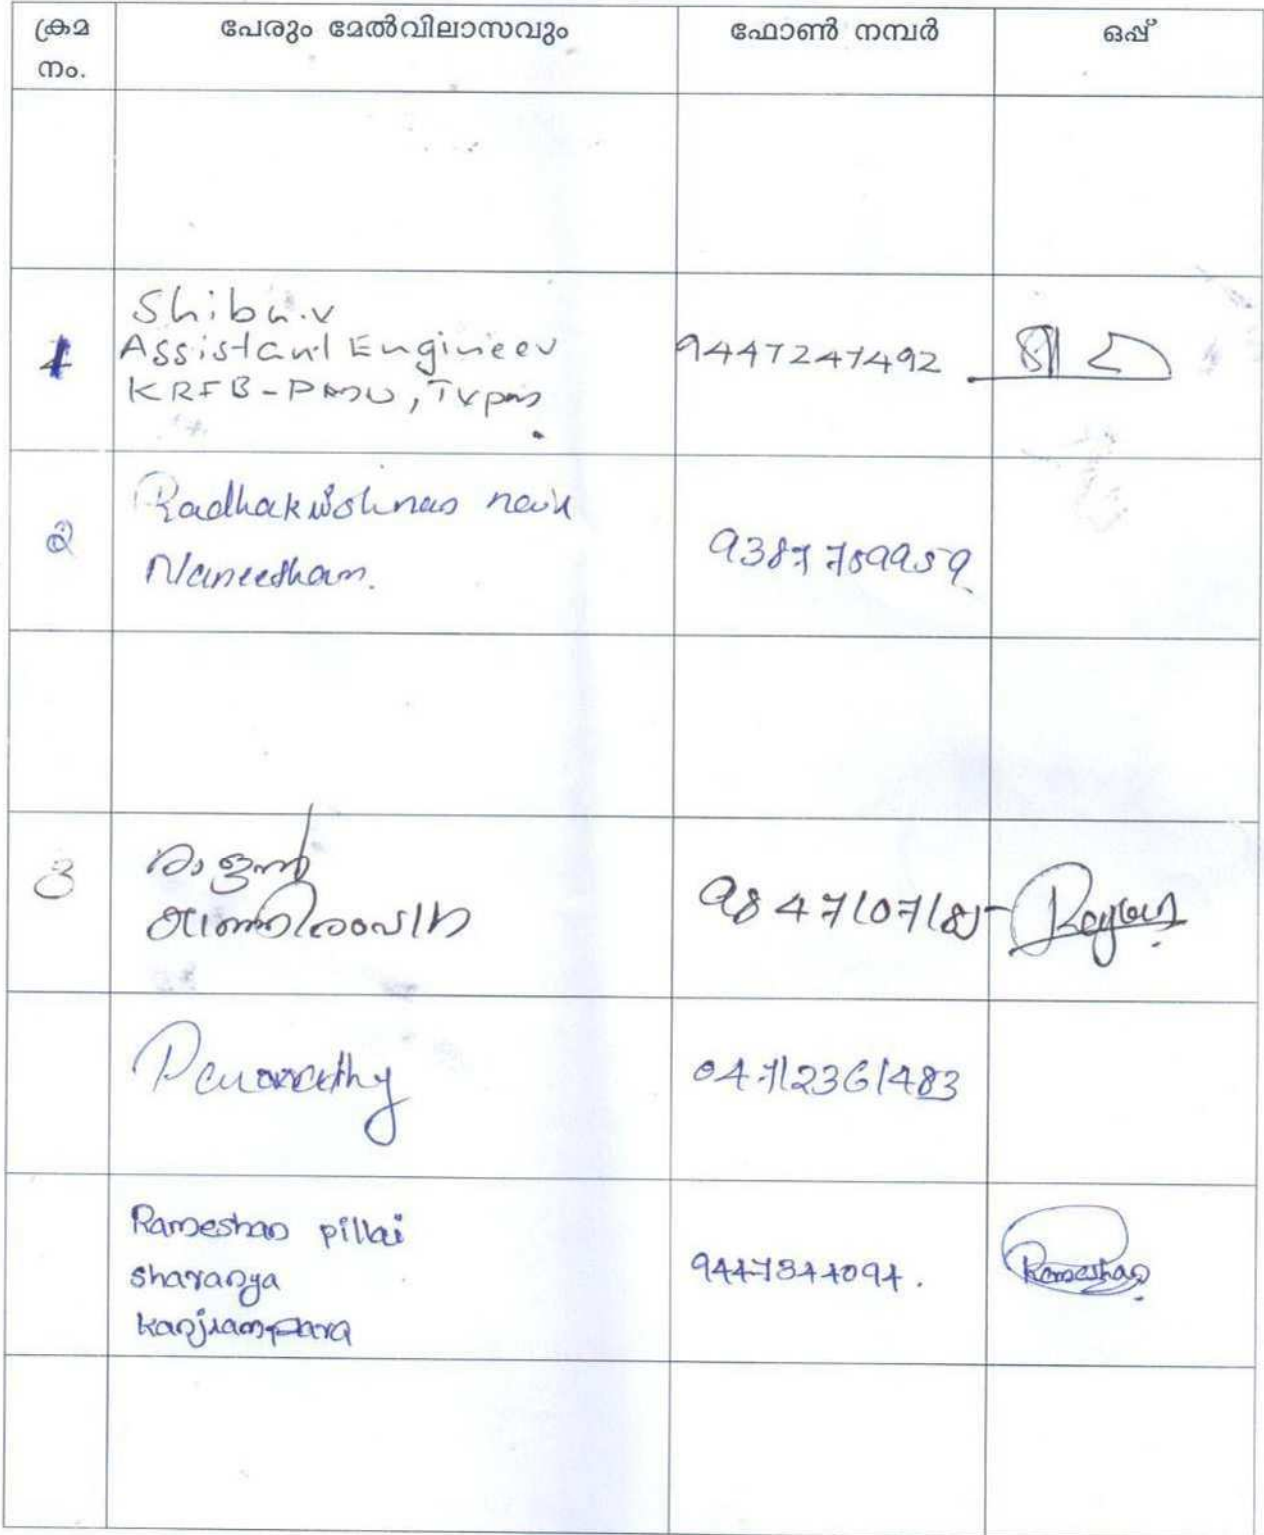 ക്രമ
നം.
പേരും മേൽവിലാസവും
ഫോൺ നമ്പർ
ഒപ്പ്
1
Shibu.v
Assistant Engineer
KRFB-PMU, Tvpm
9447247492
2
Radhakrishnan nair
Navneetham.
9387709959
3
രാജൻ
9847107181
Rajan
Parvathy
04712361483
Rameshan pillai
sharanya
kanjirampara
9447344094.
Rameshan